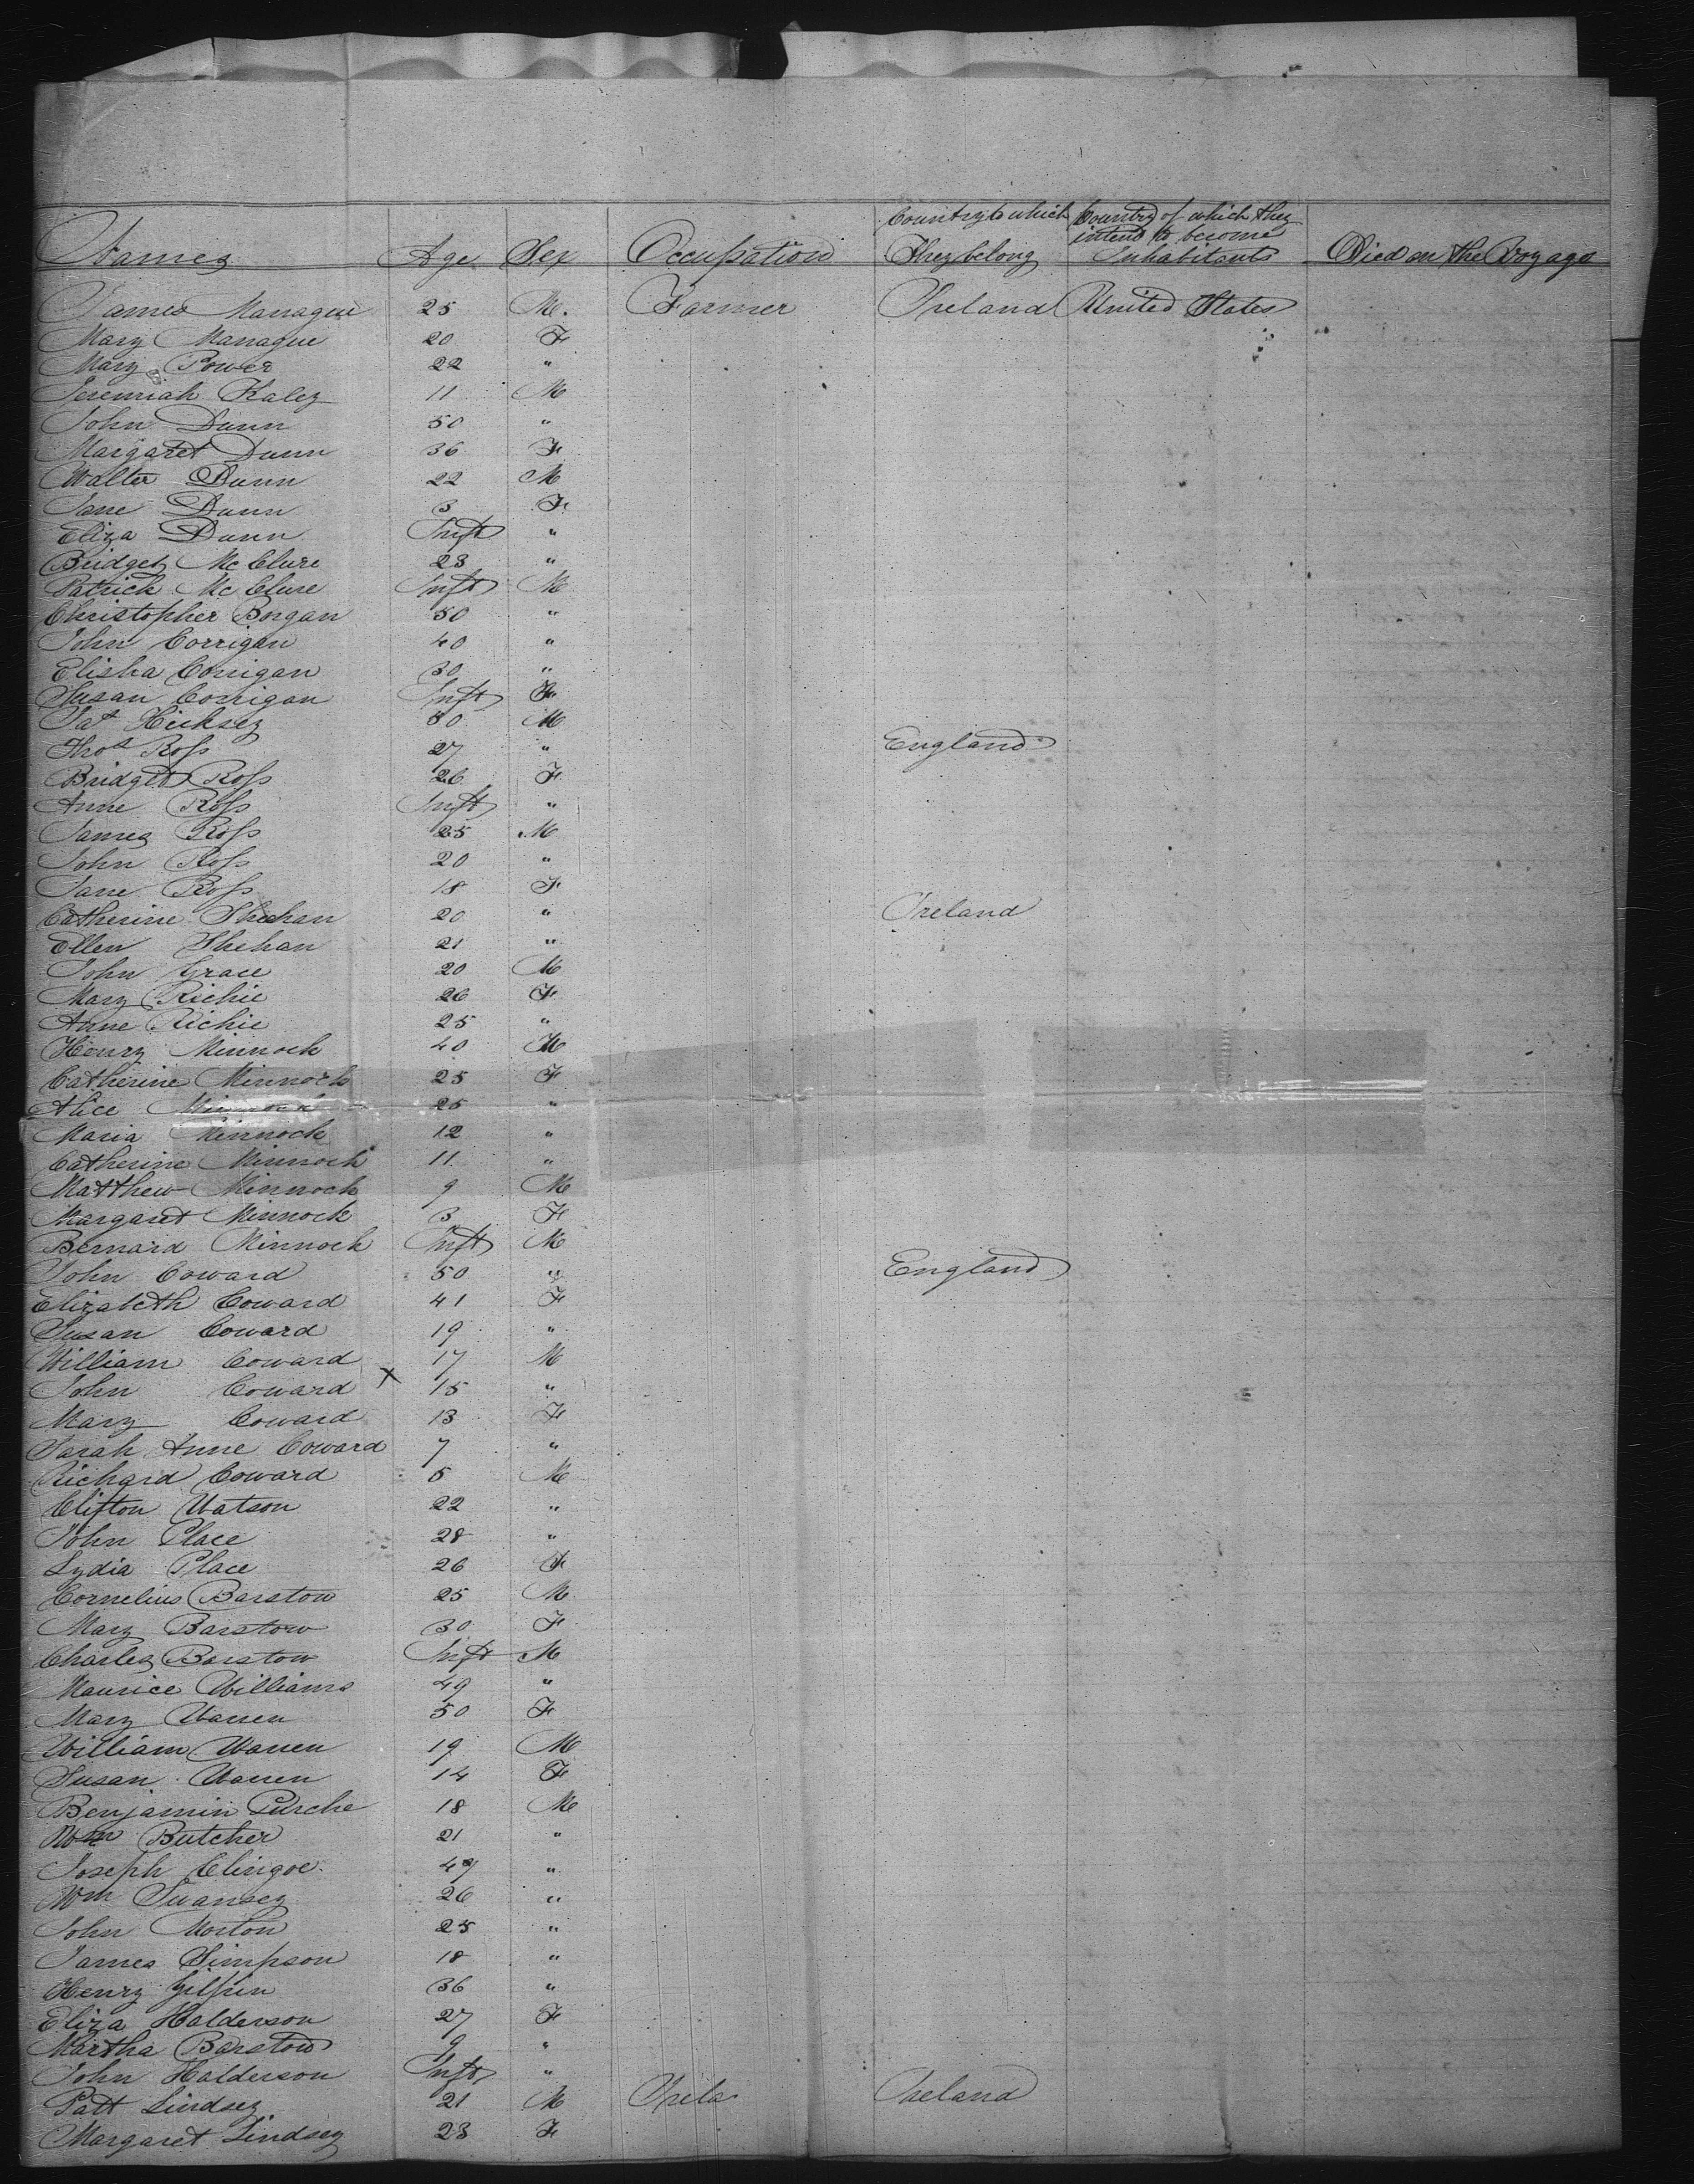 Names Age Sex Occupation Country to which They belong Country of which they intend to become Inhabitants Died on the Voyage
James Manague 25 M. Farmer Ireland United States
Mary Manague 20 F
Mary Power 22 "
Jeremiah Kaley 11 M
John Dunn 50 "
Margaret Dunn 36 F
Walter Dunn 22 M
Jane Dunn 3 F
Eliza Dunn Inft "
Bridget McClure 23 "
Patrick McClure Inft M
Christopher Brogan 50 "
John Corrigan 40 "
Elisha Corrigan 30 "
Susan Corrigan Inft F
Pat Hicksey 30 M
Thos Ross 27 " England
Bridget Ross 26 F
Anne Ross Inft "
James Ross 25 M
John Ross 20 "
Jane Ross 18 F
Catherine Sheehan 20 " Ireland
Ellen Shehan 21 "
John Grace 20 M
Mary Richie 26 F
Anne Richie 25 "
Henry Minnock 40 M
Catherine Minnock 25 F
Alice Minnock 25 "
Maria Minnock 12 "
Catherine Minnock 11 "
Matthew Minnock 9 M
Margaret Minnock 3 F
Bernard Minnock Inft M
John Coward 50 " England
Elizabeth Coward 41 F
Susan Coward 19 "
William Coward 17 M
John Coward x 15 "
Mary Coward 13 F
Sarah Anne Coward 7 "
Richard Coward 5 M
Clifton Watson 22 "
John Place 28 "
Lydia Place 26 F
Cornelius Barstow 25 M
Mary Barstow 30 F
Charles Barstow Inft M
Maurice Williams 49 "
Mary Warren 50 F
William Warren 19 M
Susan Warren 14 F
Benjamin Purche 18 M
Wm Butcher 21 "
Joseph Clingoe 47 "
Wm Swansey 26 "
John Morton 25 "
James Simpson 18 "
Henry Gilpin 36 "
Eliza Halderson 27 F
Martha Barstow 9 "
John Halderson Inft "
Patt Lindsey 21 M Irela Ireland
Margaret Lindsey 23 F